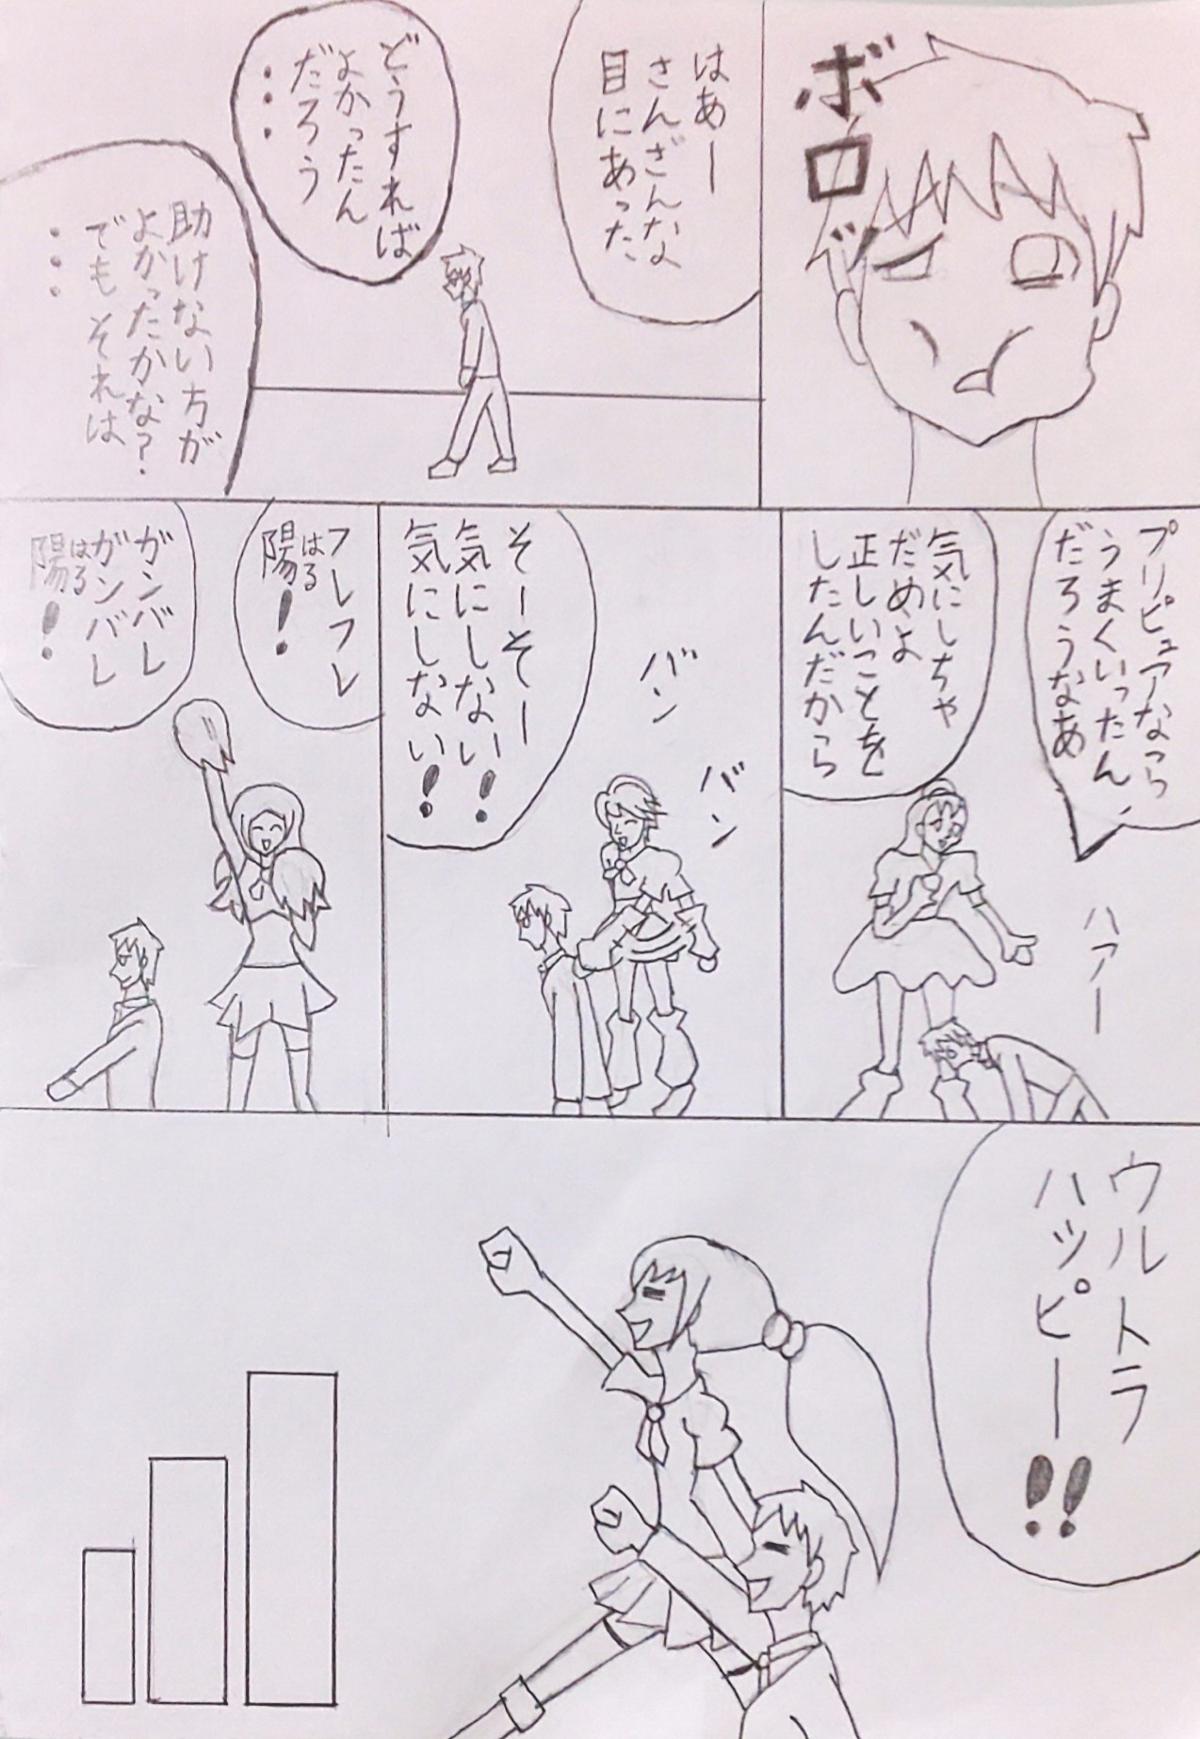 ボロッ
はあー
さんざんな
目にあった
どうすれば
よかったん
だろう
・・・
助けない方が
よかったかな？
でもそれは
・・・
プリピュアなら
うまくいったん
だろうなあ
ハァー
気にしちゃ
だめよ
正しいことを
したんだから
バン
バン
そーそー
気にしない！
気にしない！
フレフレ
はる
陽！
ガンバレ
ガンバレ
はる
陽！
ウルトラ
ハッピー！！